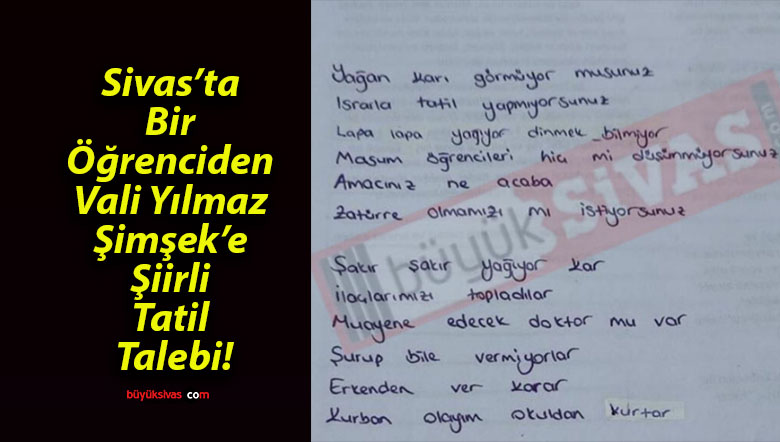 Sivas’ta
Bir
Öğrenciden
Vali Yılmaz
Şimşek’e
Şiirli
Tatil
Talebi!
büyüksivas com
Yağan karı görmüyor musunuz
Israrla tatil yapmıyorsunuz
Lapa lapa yağıyor dinmek bilmiyor
Masum öğrencileri hic mi düşünmüyorsunuz
Amacınız ne acaba
Zatürre olmamızı mı istiyorsunuz
Şakır şakır yağıyor kar
İlaçlarımızı topladılar
Muayene edecek doktor mu var
Şurup bile vermiyorlar
Erkenden ver karar
Kurban olayım okuldan kurtar
büyük SİVAS